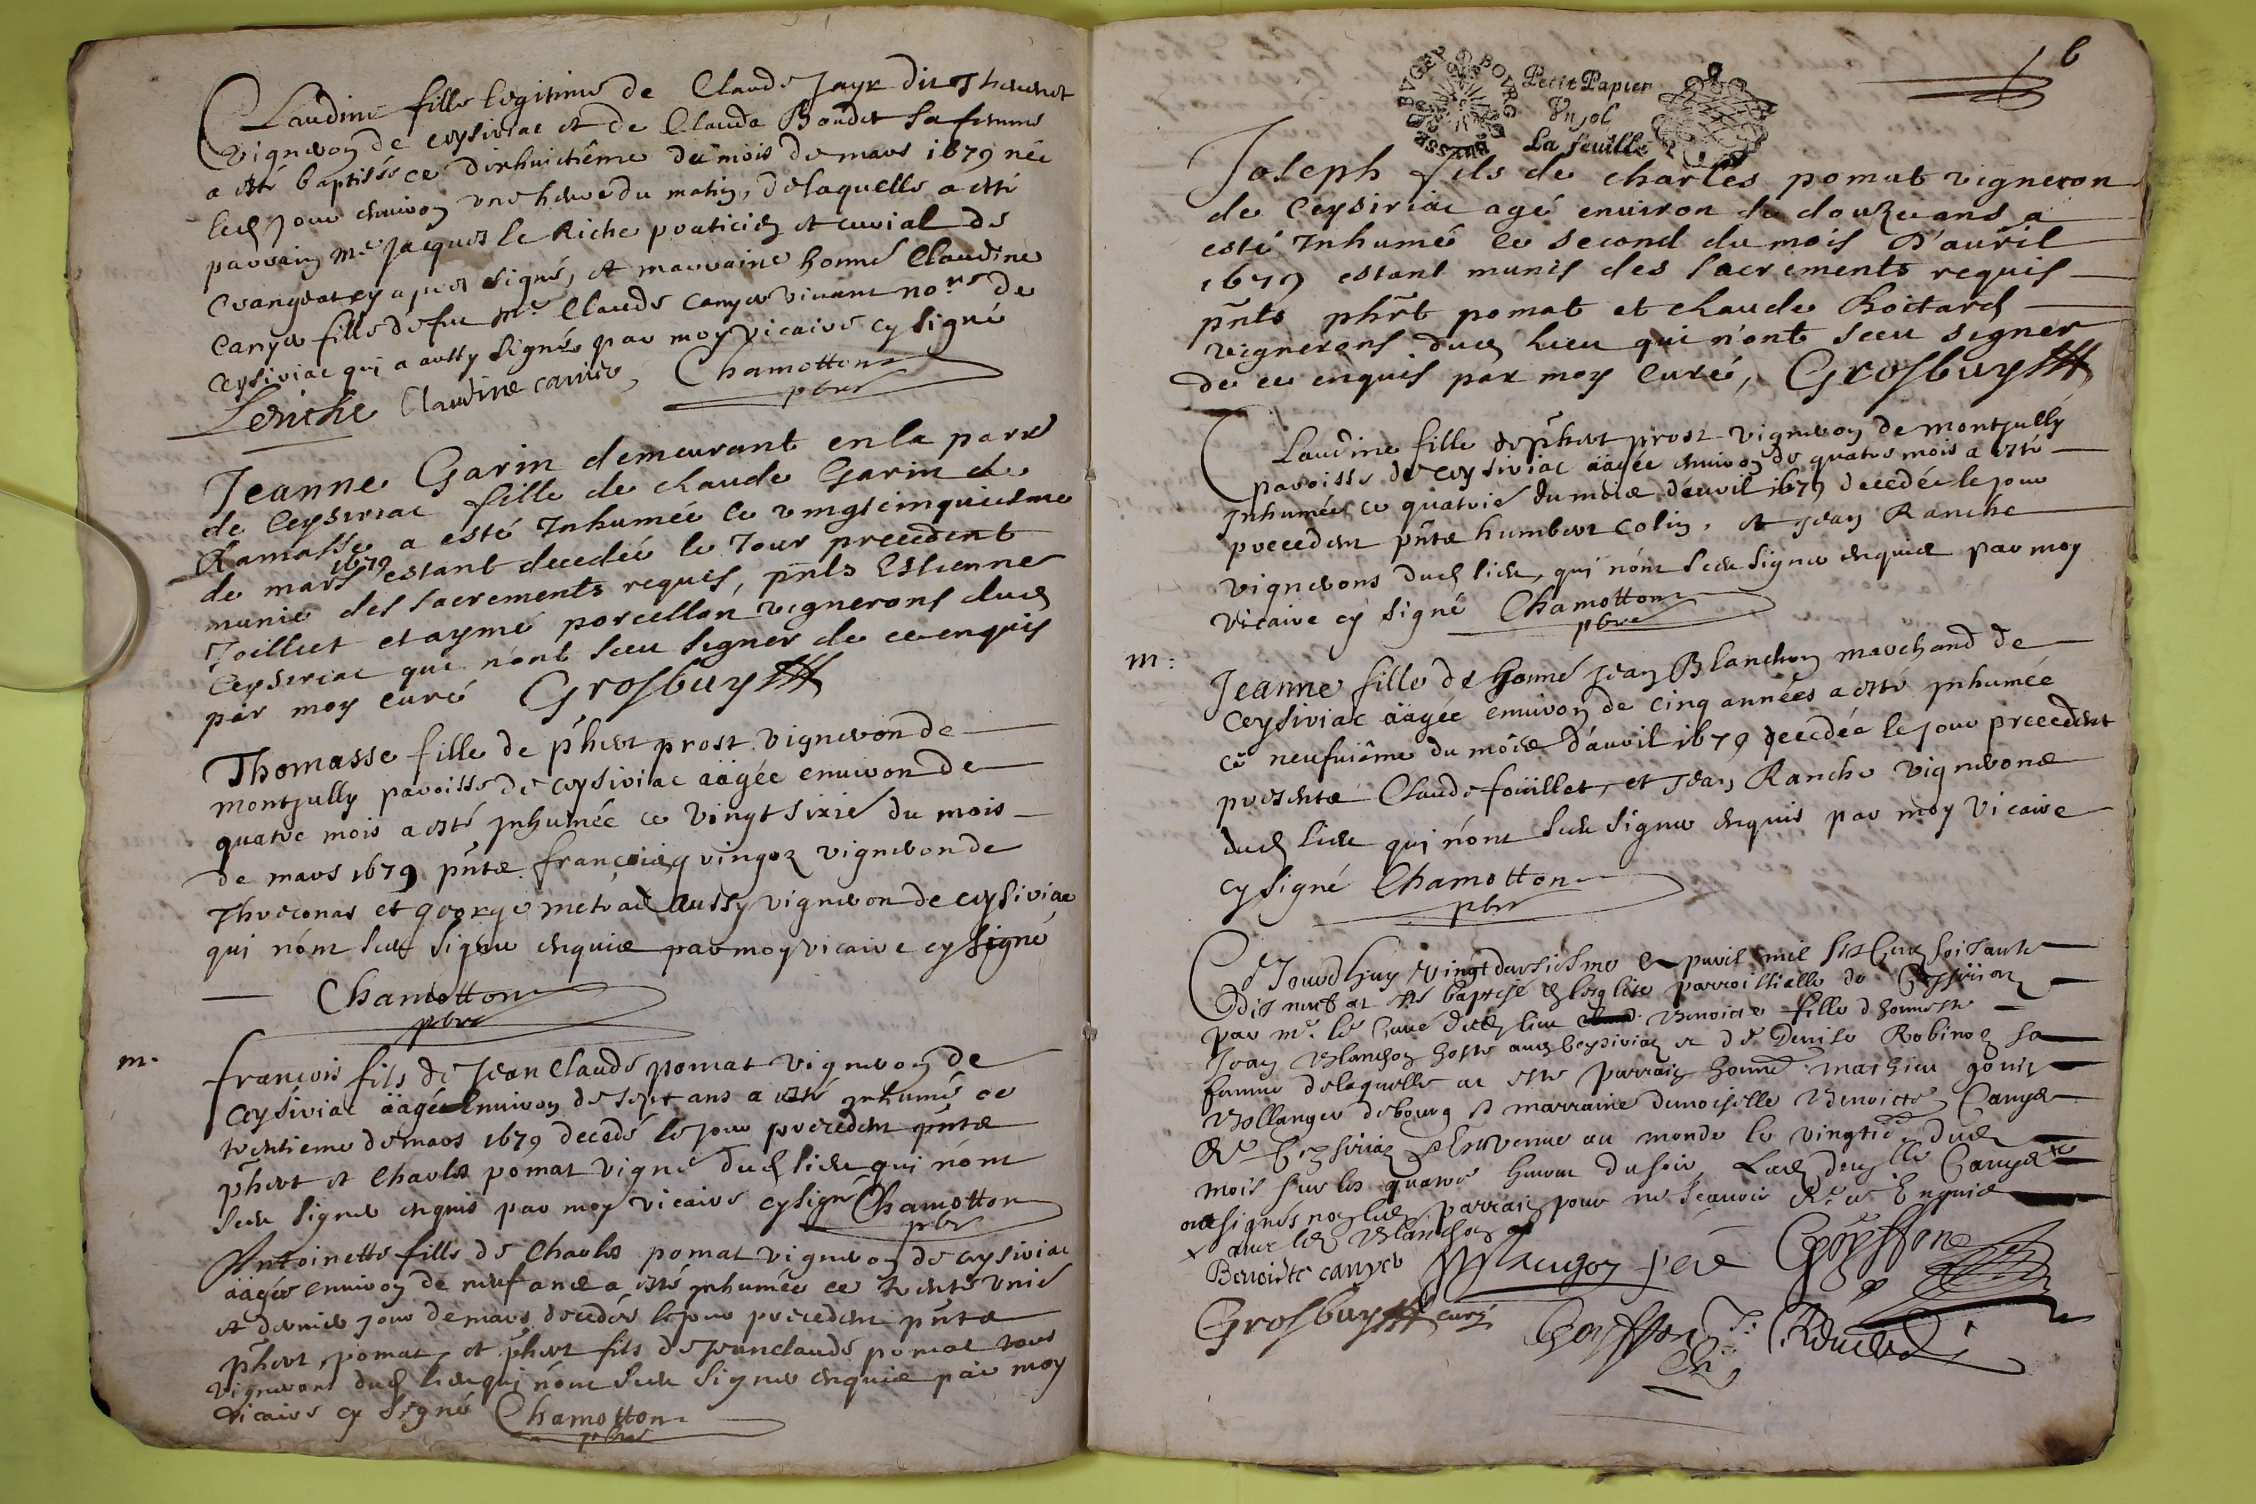 Claudine fille legitime de Claude Jayr dit Thevenet
vigneron de ceysiriac et de Clauda Bondet sa femme
a esté baptisée ce dixhuictième du mois de mars 1679 née
led jour environ une heure du matin, de laquelle a esté
parrain Me Jacques le Riche praticien et curial de
signé, et marraine honne Claudine
Canyer fille de feu Me Claude Canyer vivant nore de
Ceysiriac qui a aussy signé, par moy vicaire cy signé
Leriche Claudine canier, Chamotton
pbre
Jeanne Garin demeurant en la parre
de Ceysiriac fille de claude Garin de
Ramasse a esté Inhumée ce vingtcinquiesme
de mars 1679 estant decedée le Jour precedent
munie des sacrements requis, pnts Estienne
Joillet et aymé porcellon vignerons dud
Ceysiriac qui n'ont sceu signer de ce enquis
par moy curé Grosbuy
Thomasse fille de phert prost vigneron de
montjully paroisse de ceysiriac äagée environ de
quatre mois a esté jnhumée ce vingt sixie du mois
de mars 1679 pnts françois vingoz vigneron de
Threconas et george metrad aussy vigneron de ceysiriac
qui nónt sceu signer enquis par moy vicaire cy signé
Chamotton
pbre
m.
françois fils de Jean Claude pomat vigneron de
Ceysiriac äagé environ de sept ans a esté jnhumé ce
trentieme de mars 1679 decedé le jour precedent pnts
phert et Charles pomat vigne dud lieu qui nónt
sceu signer enquis par moy vicaire cy signé Chamotton
pbre
Antoinette fille de Charles pomat vigneron de ceysiriac
äagée environ de neuf ans a esté jnhumée ce trente unie
et dernier jour de mars decedée le jour precedent pnts
phert pomat, et phert fils de jeanclaude pomat tous
vignerons dud lieu qui nónt sceu signer enquis par moy
vicaire cy signé Chamotton
pbre
6
BOURG BUGEY BRESSE
Petit Papier
Un sol
La feuille
Joseph fils de charles pomat vigneron
de Ceysiriac agé environ de douze ans a
esté Inhumé ce second du mois d'avril
1679 estant munis des sacrements requis
pnts phrt pomat et claude Boitard
vignerons dud lieu qui n'ont sceu signer
de ce enquis par moy Curé, Grosbuy
Claudine fille de phert prost vigneron de montjully
paroisse de ceysiriac äagée environ de quatre mois a esté
jnhumée ce quatrie du mois d'avril 1679 decedée le jour
precedent pnts humbert colin, et jean Ranche
vignerons dud lieu, qui nónt sceu signer enquis par moy
vicaire cy signé Chamotton
pbre
m:
Jeanne fille de honne jean Blanchon marchand de
Ceysiriac äagée environ de cinq années a esté jnhumée
ce neufuième du mois d'avril 1679 decedée le jour precedent
presents Claude foüillet, et Jean Ranche vignerons
dud lieu qui nónt sceu signer enquis par moy vicaire
cy signé Chamotton
pbre
Ce Jourdhuy vingt deusiesme apvril mil six Cent soixante
dix neuf at este baptisé en leglise parroissialle de
par mr le Curé dud lieu Benoiste fille d honneste
Jean Blanchon hoste aud Ceysiriat et de Denise Robinet sa
femme de laquelle at este parrain honne mathieu
Bollanger de bourg et marraine demoiselle Benoiste Canyer
de Ceysiriat venue au monde le vingtie dud
mois sur les quatre heures du soir, Lad Canyer
ont signés non led parrain pour ne scavoir de ce Enquis
avec led Blanchon
Benoiste canyer Blanchon pere Goyffone
Grosbuy curé Goyffon